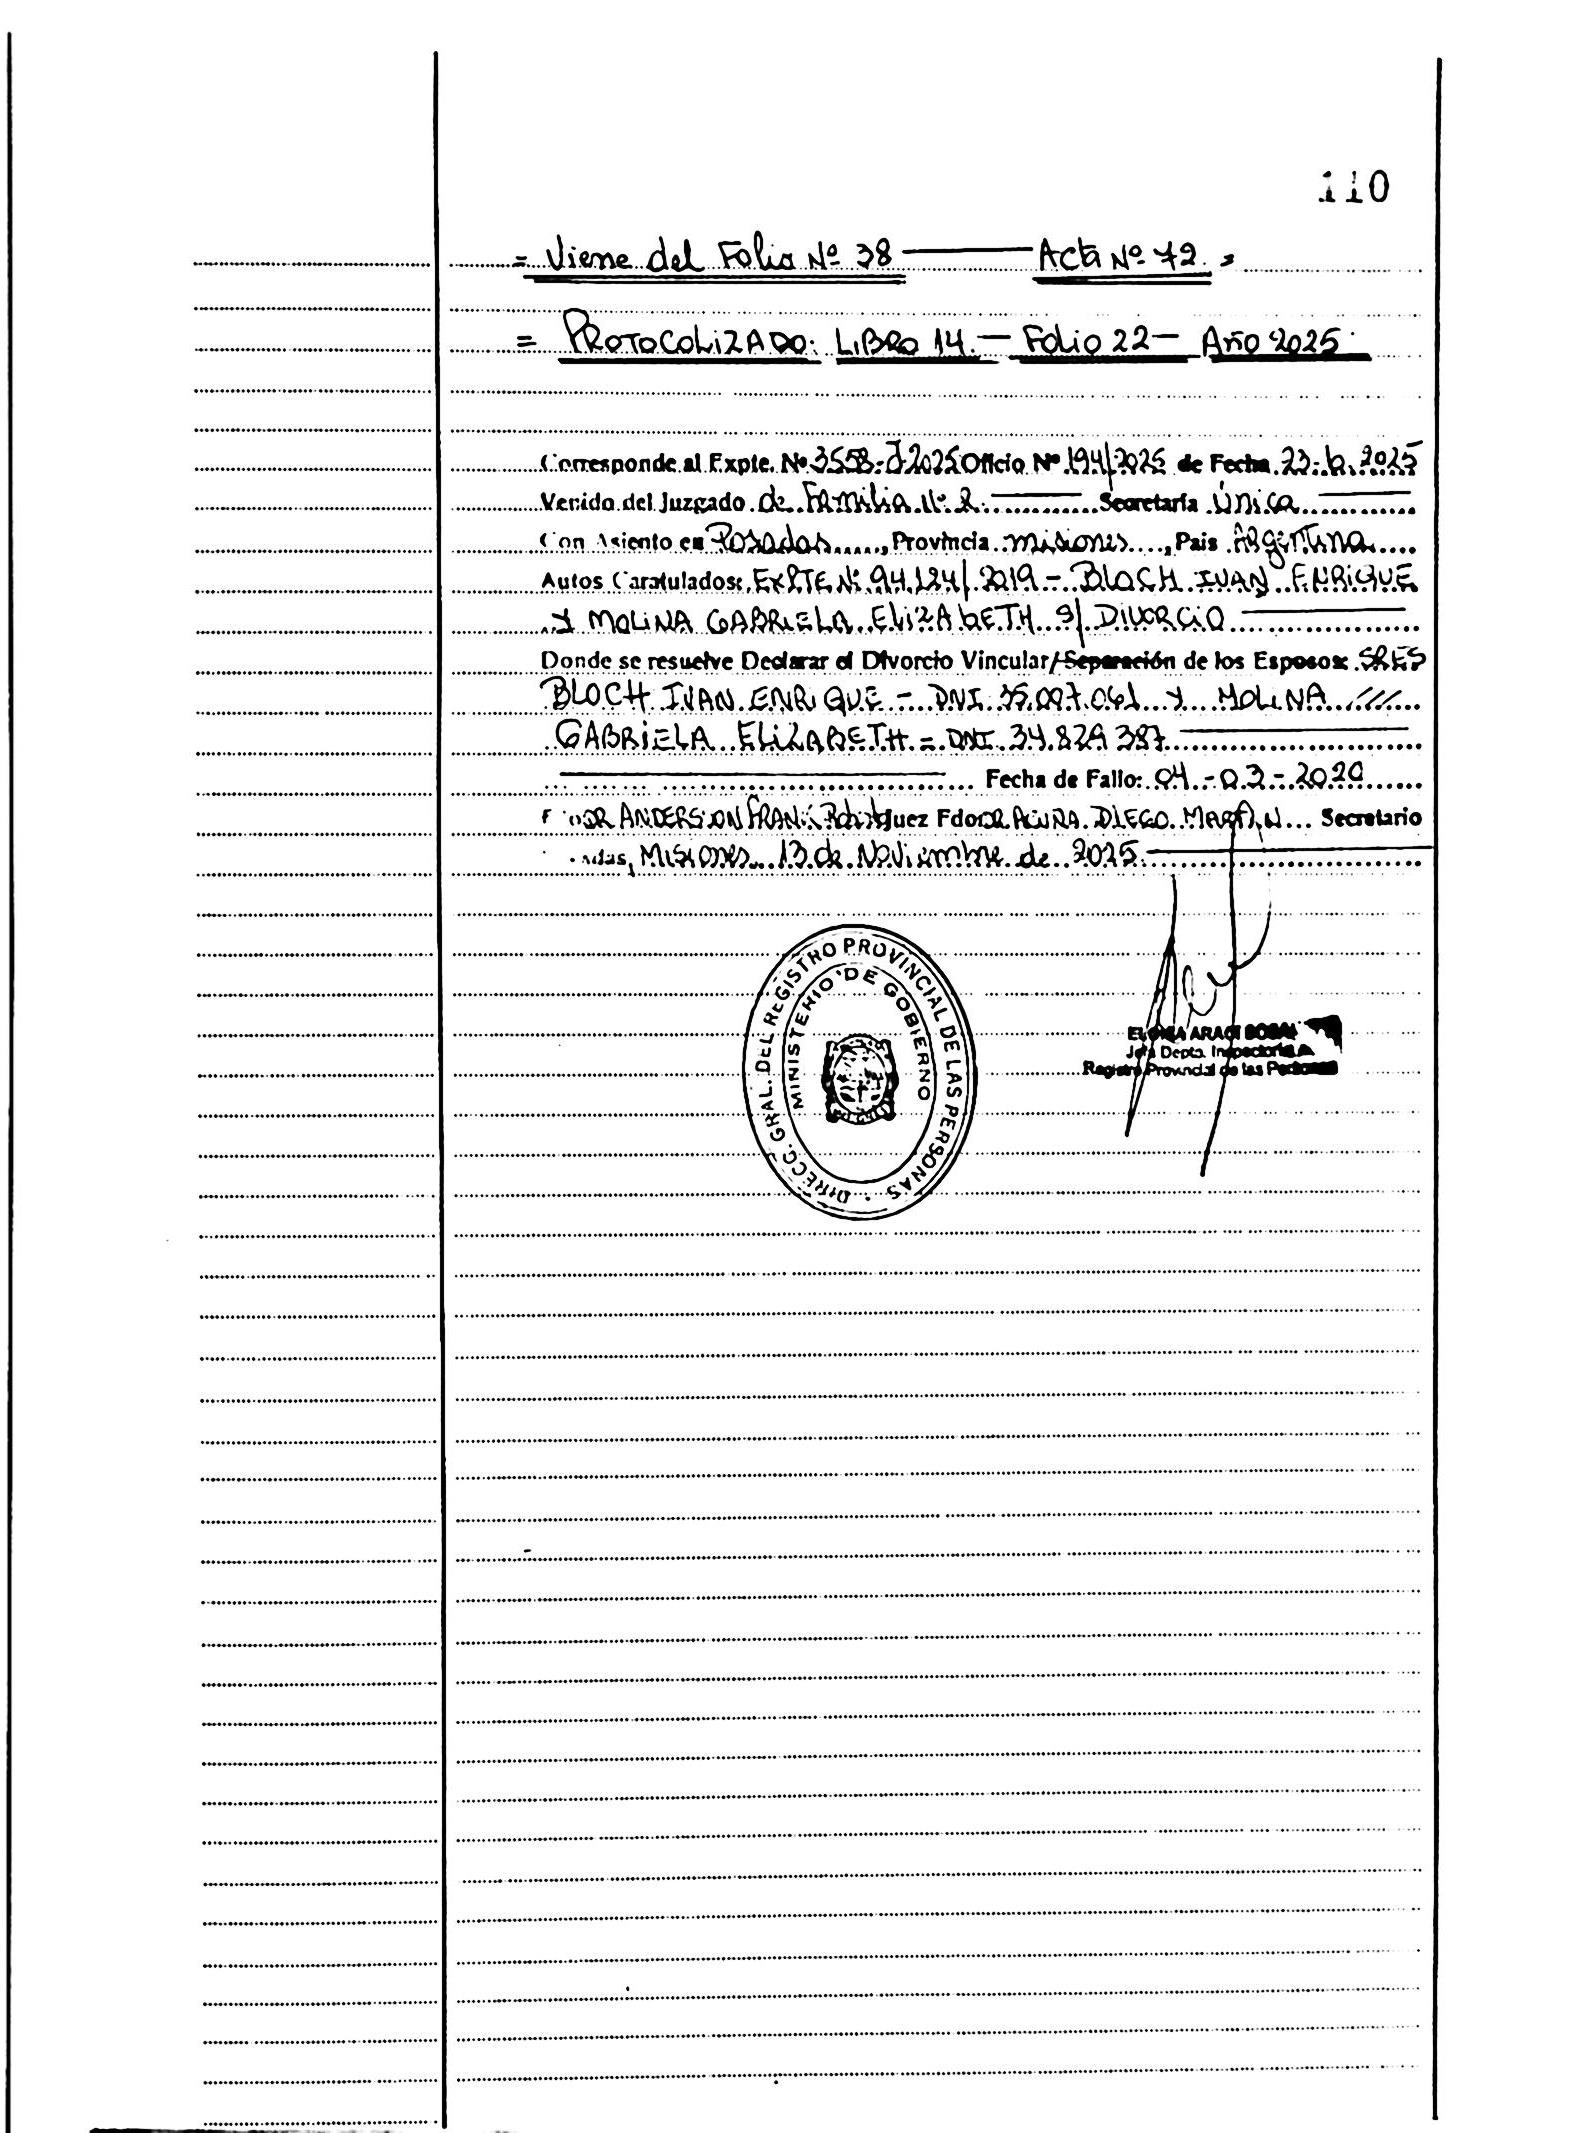 110
= Viene del Folio Nº 38 ——— Acta Nº 72. =
= PROTOCOLIZADO: LIBRO 14. — Folio 22 — Año 2025.
Corresponde al Expte. Nº 3558-J-2025 Oficio Nº 194/2025 de Fecha 23-6-2025
Venido del Juzgado de Familia Nº 2. ——— Secretaría Única ———
Con Asiento en Posadas, Provincia misiones, País Argentina
Autos Caratulados: EXPTE Nº 94.124/2019 – BLOCH IVAN ENRIQUE
Y MOLINA GABRIELA ELIZABETH S/ DIVORCIO ———
Donde se resuelve Declarar el Divorcio Vincular/Separación de los Esposos: SRES
BLOCH IVAN ENRIQUE – DNI 35.007.061 Y MOLINA ///
GABRIELA ELIZABETH = DNI. 34.829.387 ———
——— Fecha de Fallo: 04-03-2020
DR ANDERSSON FRANK Juez Fdo: DR ACUÑA DIEGO MARTIN Secretario
Misiones 13 de Noviembre de 2025 ———
DIRECC. GRAL. DEL REGISTRO PROVINCIAL DE LAS PERSONAS
MINISTERIO DE GOBIERNO
ARACI
Jefa Depto. Inspectoría
Registro Provincial de las Personas